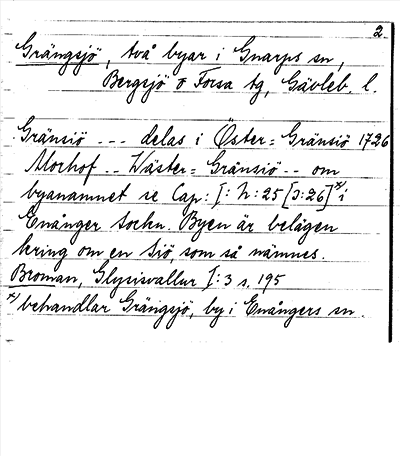 2.
Grängsjö, två byar i Gnarps sn,
Bergsjö o Forsa tg, Gävleb. l.
Gränsiö --- delas i Öster=Gränsiö 1726
Morhof -- Wäster=Gränsiö -- om
byanamnet se Cap: I: h: 25 [ɔ: 26] x) i
Enånger sochn. Byen är belägen
kring om en siö, som så nämnes.
Broman, Glysisvallur I: 3 s. 195
x) behandlar Grängsjö, by i Enångers sn.